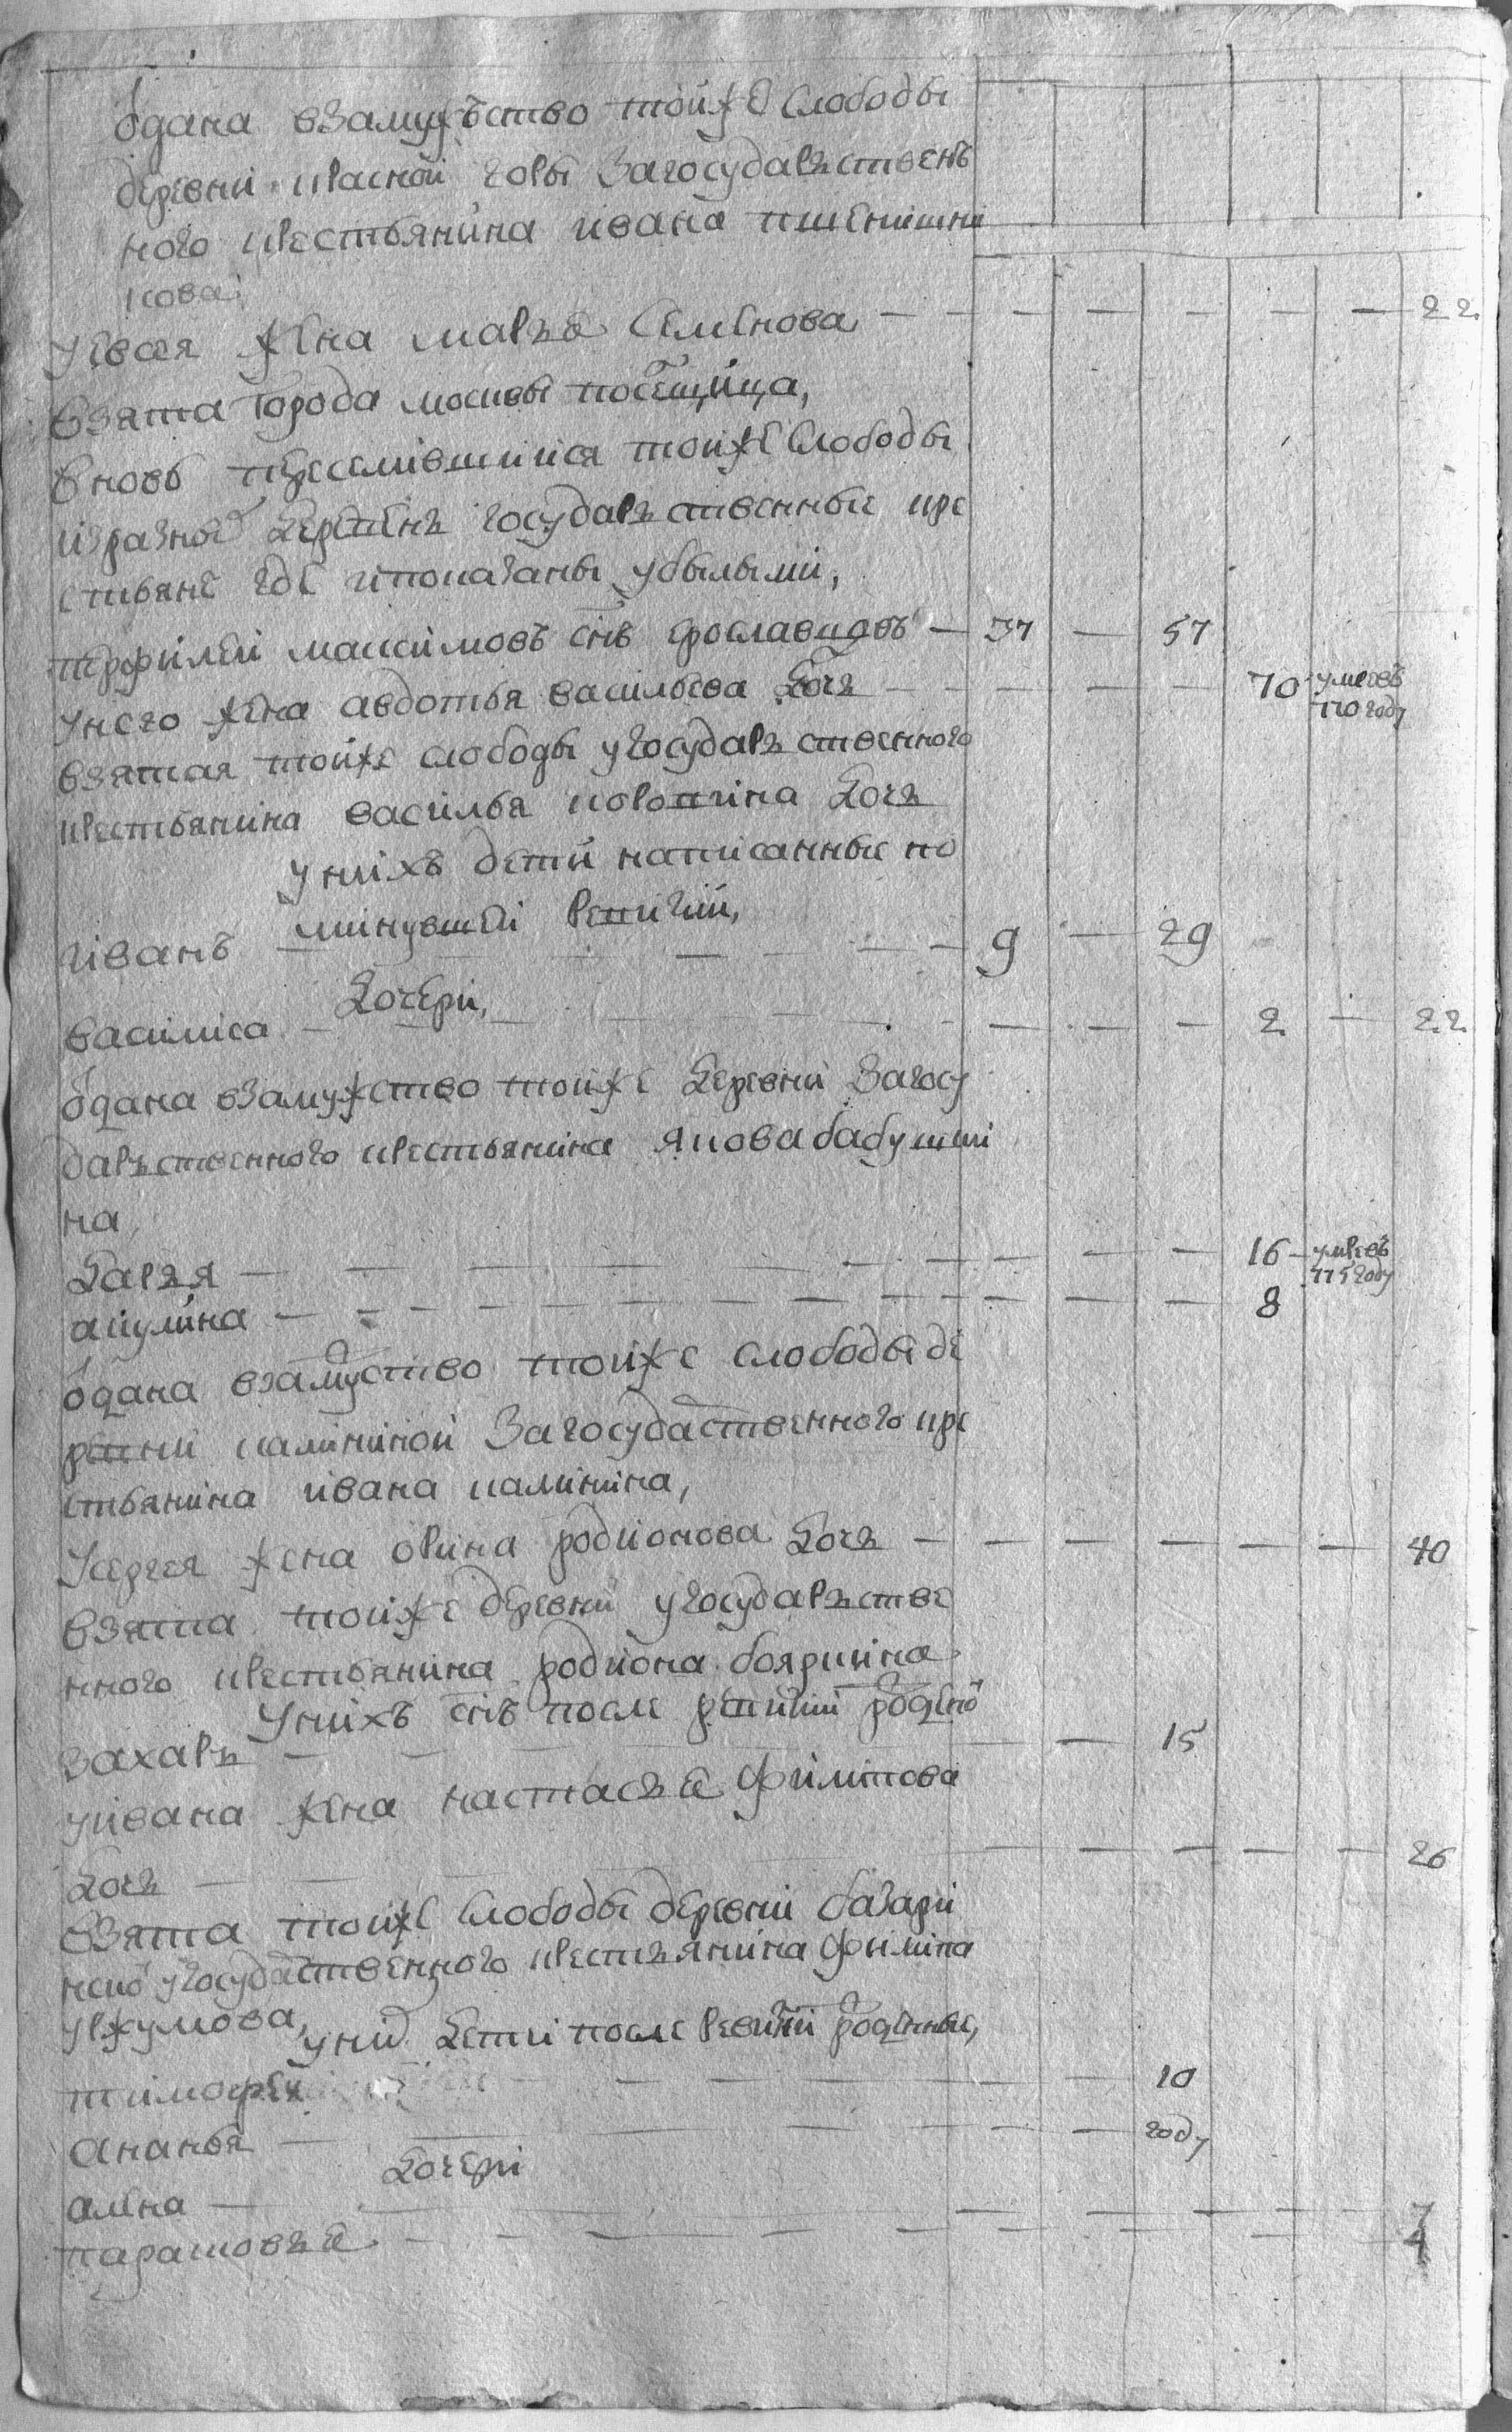 одана взамужъство тойже слободы
деревни красной горы загосударъственъ
ного крестьянина ивана пшенишни
кова
жена маръя семенова — 22
взята города москвы
вновь переселившийся тойже слободы
изразных деревень государъственные кре
стьяне где ипоказаны убылыми,
перфилей максимовъ снъ ерославцовъ — 37 — 57
унего жена авдотья васильева дочъ — 70 умре въ
770 году
взятая тойже слободы угосударъственного
крестьянина василья коропкина дочъ
унихъ дети написанные по
минувшей ревизии,
иванъ — 9 — 29
дочери,
василиса — 2 — 22
одана взамужство тойже деревни загосу
даръственного крестьянина якова бабушки
на
даръя — 16 — умре въ
775 году
акулина — 8
одана взамуство тойже слободы де
ревни калининой загосударственного кре
стьянина ивана калинина,
усергея жена орина родионова дочъ — 40
взята тойже деревни угосударъстве
нного крестьянина родиона бояркина
унихъ снъ после ревизии рожденной
захаръ — 15
уивана жена настасъя филипова
дочъ — 26
взята тойже слободы деревни базари
нской угосударственного крестъянина филипа
уржумова,
уних дети после ревизии рожденные,
тимофей — 10
ананья — году
дочери
алена — 7
парасковъя — 4